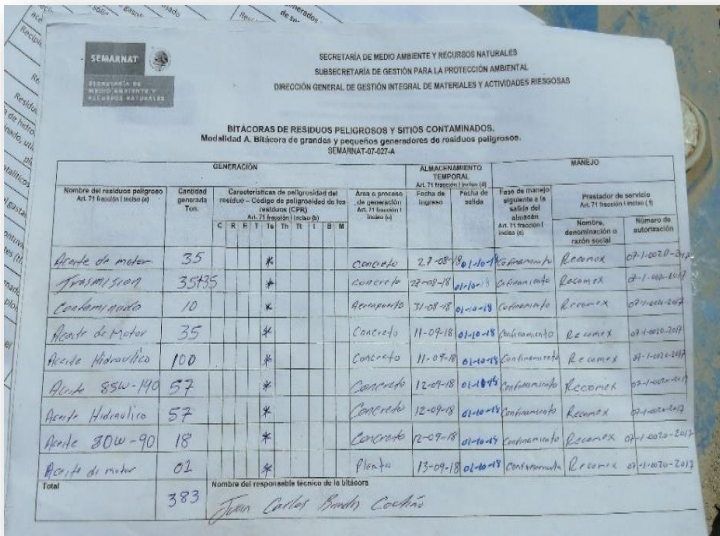 SEMARNAT
SECRETARÍA DE
MEDIO AMBIENTE Y
RECURSOS NATURALES
SECRETARÍA DE MEDIO AMBIENTE Y RECURSOS NATURALES
SUBSECRETARÍA DE GESTIÓN PARA LA PROTECCIÓN AMBIENTAL
DIRECCIÓN GENERAL DE GESTIÓN INTEGRAL DE MATERIALES Y ACTIVIDADES RIESGOSAS
BITÁCORAS DE RESIDUOS PELIGROSOS Y SITIOS CONTAMINADOS.
Modalidad A. Bitácora de grandes y pequeños generadores de residuos peligrosos.
SEMARNAT-07-027-A
GENERACIÓN
ALMACENAMIENTO TEMPORAL
Art. 71 fracción I inciso (d)
MANEJO
Nombre del residuos peligroso
Art. 71 fracción I inciso (a)
Cantidad generada Ton.
Características de peligrosidad del residuo – Código de peligrosidad de los residuos (CPR)
Art. 71 fracción I inciso (b)
C R E T Te Th Tt I B M
Área o proceso de generación
Art. 71 fracción I inciso (c)
Fecha de ingreso
Fecha de salida
Fase de manejo siguiente a la salida del almacén
Art. 71 fracción I inciso (e)
Prestador de servicio
Art. 71 fracción I inciso (f)
Nombre, denominación o razón social
Número de autorización
Aceite de motor 35 * Concreto 27-08-18 01-10-18 Confinamiento Recomex 07-1-0020-2017
Trasmision 35+35 * Concreto 27-08-18 01-10-18 Confinamiento Recomex 07-1-0020-2017
Contaminado 10 * Aeropuerto 31-08-18 01-10-18 Confinamiento Recomex 07-1-0020-2017
Aceite de Motor 35 * Concreto 11-09-18 01-10-18 Confinamiento Recomex 07-1-0020-2017
Aceite Hidraulico 100 * Concreto 11-09-18 01-10-18 Confinamiento Recomex 07-1-0020-2017
Aceite 85W-140 57 * Concreto 12-09-18 01-10-18 Confinamiento Recomex 07-1-0020-2017
Aceite Hidraulico 57 * Concreto 12-09-18 01-10-18 Confinamiento Recomex 07-1-0020-2017
Aceite 80W-90 18 * Concreto 12-09-18 01-10-18 Confinamiento Recomex 07-1-0020-2017
Aceite de motor 01 * Planta 13-09-18 01-10-18 Confinamiento Recomex 07-1-0020-2017
Total 383
Nombre del responsable técnico de la bitácora
Juan Carlos